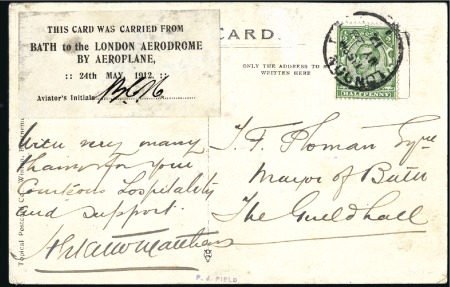 THIS CARD WAS CARRIED FROM
BATH to the LONDON AERODROME
BY AEROPLANE,
:: 24th MAY, 1912. ::
Aviator's Initials
CARD.
ONLY THE ADDRESS TO
WRITTEN HERE
HALFPENNY
LONDON
With very many
thanks for your
Courteous Hospitality
and support.
T. F. Plowman Esqre
Mayor of Bath
The Guildhall
Topical Postcard Co.
P. J. FIELD